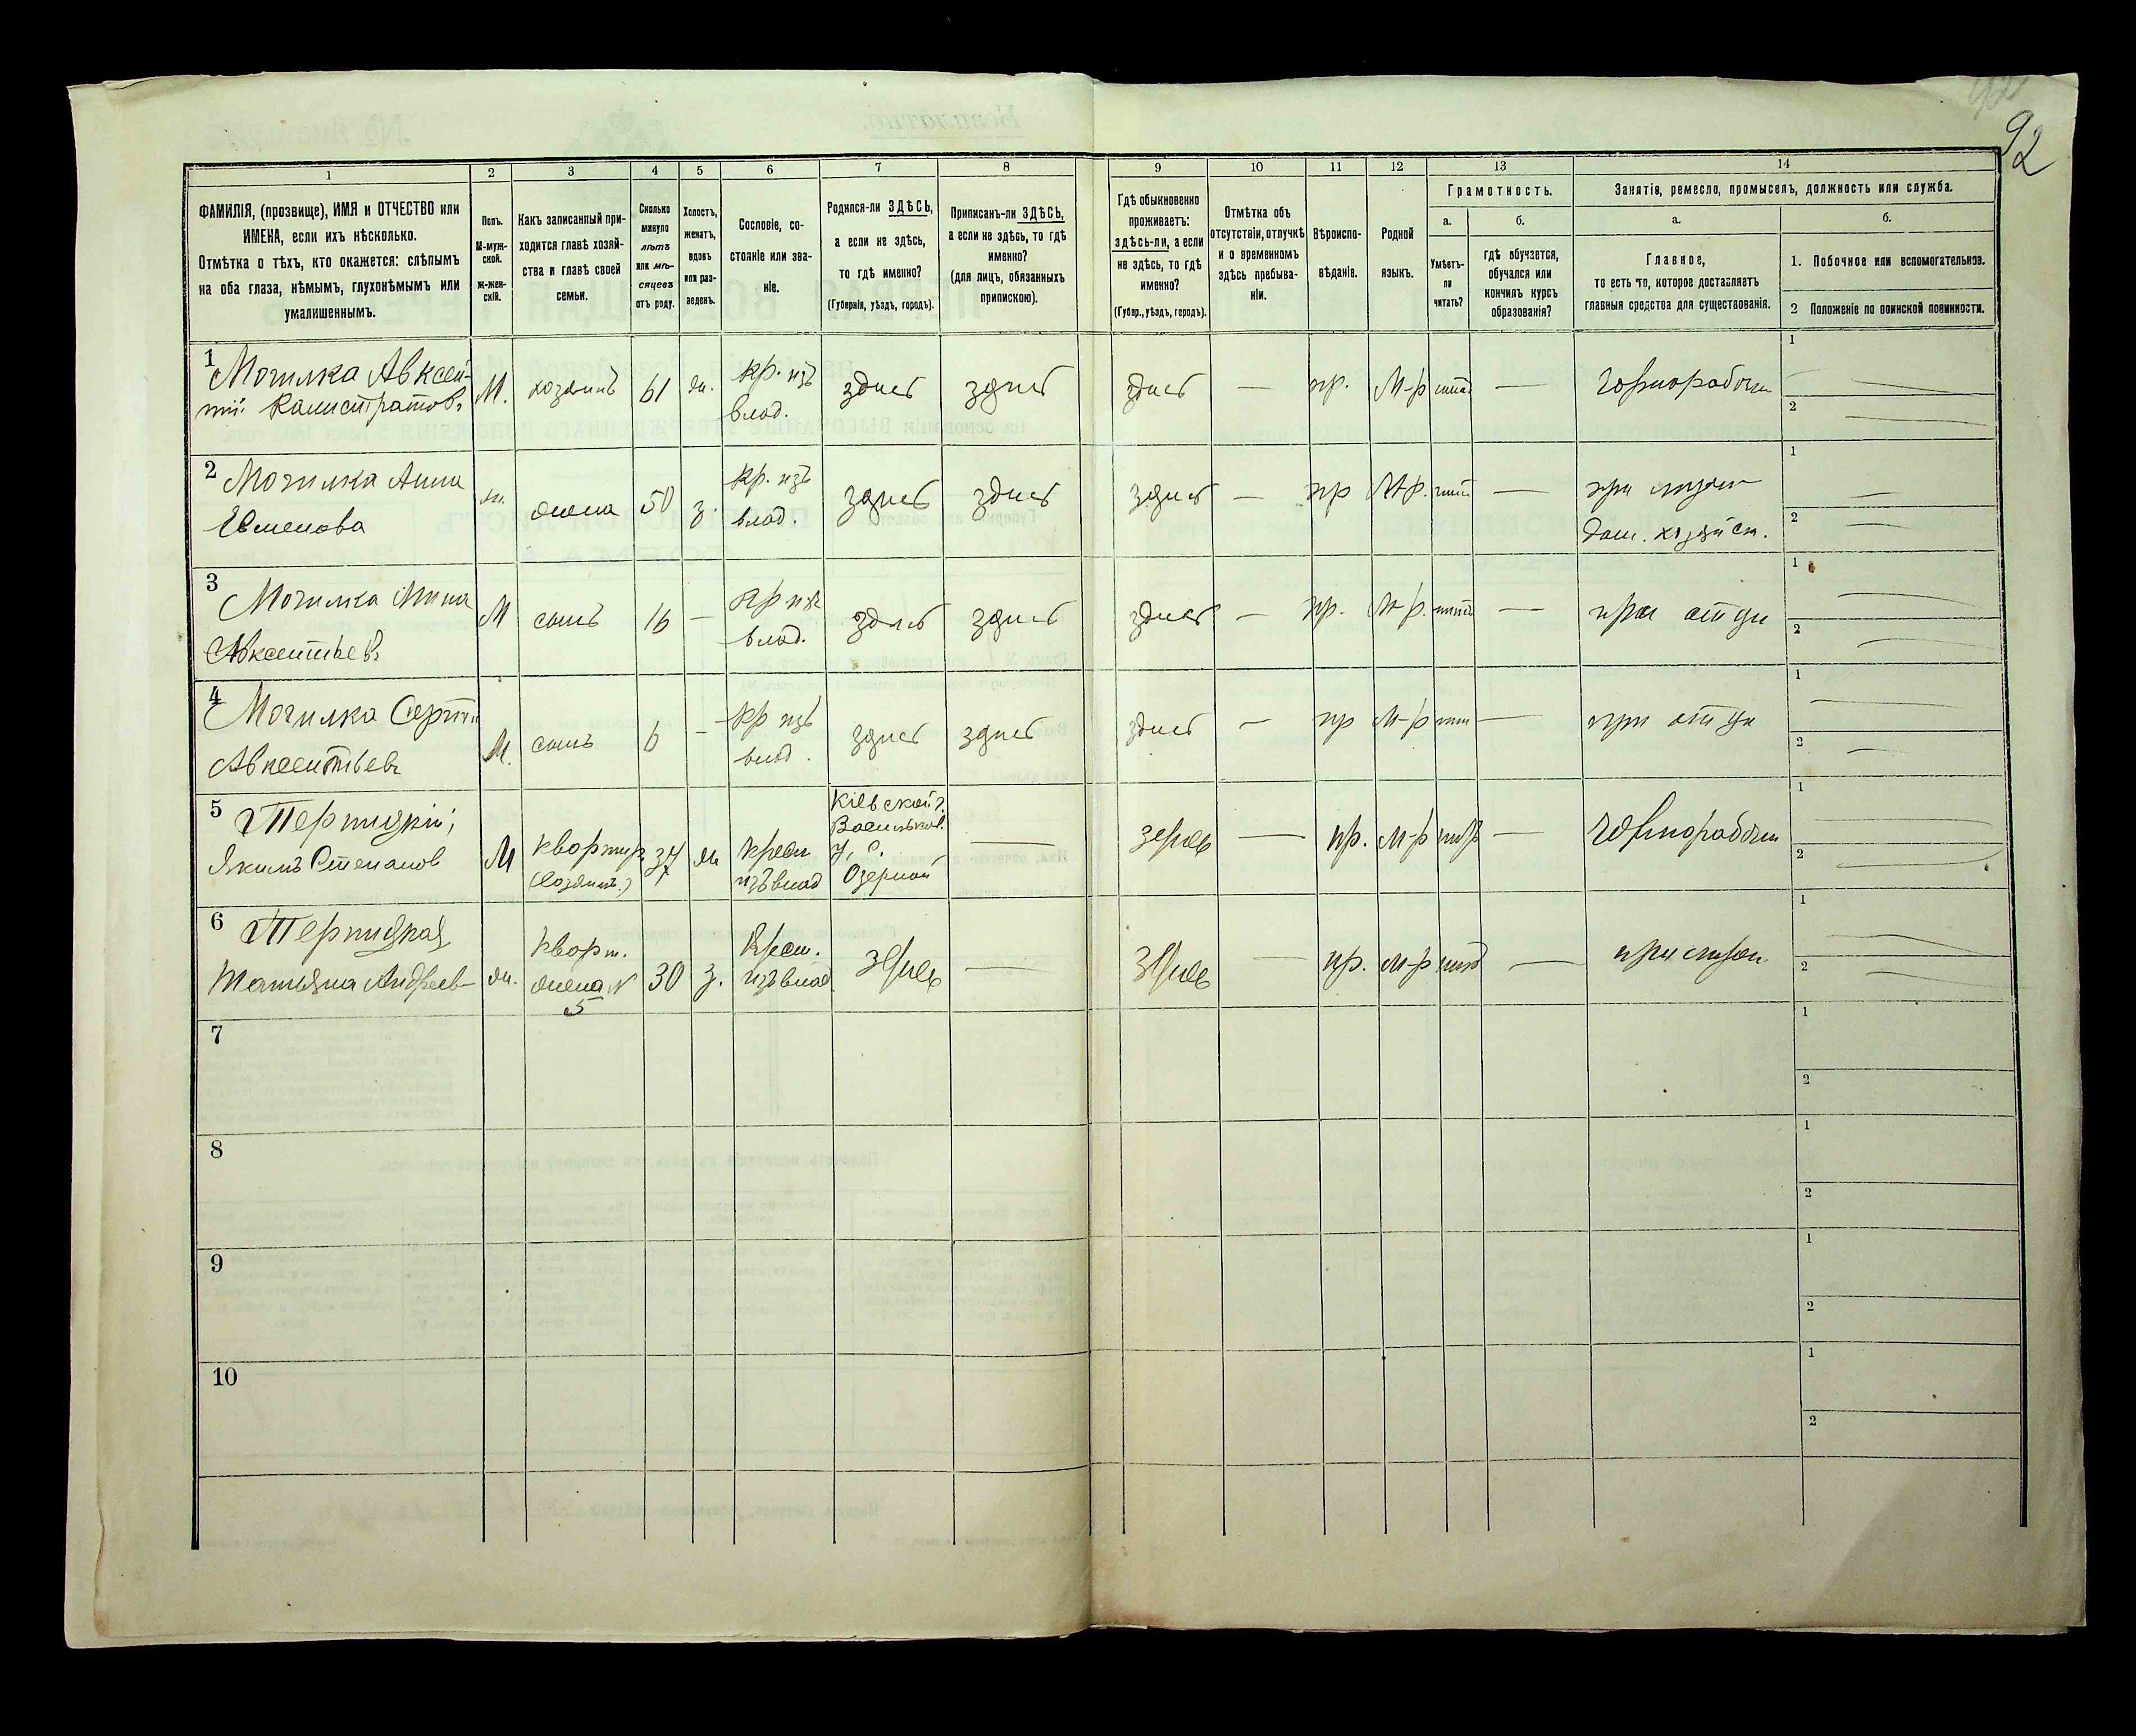 92
1
2
3
4
5
6
7
8
9
10
11
12
13
14
ФАМИЛІЯ, (прозвище), ИМЯ и ОТЧЕСТВО или
ИМЕНА, если ихъ нѣсколько.
Отмѣтка о тѣхъ, кто окажется: слѣпымъ
на оба глаза, нѣмымъ, глухонѣмымъ или
умалишеннымъ.
Полъ.
М-муж-
ской.
Ж-жен-
скій.
Какъ записанный при-
ходится главѣ хозяй-
ства и главѣ своей
семьи.
Сколько
минуло
лѣтъ
или мѣ-
сяцевъ
отъ роду.
Холостъ,
женатъ,
вдовъ
или раз-
веденъ.
Сословіе, со-
стояніе или зва-
ніе.
Родился-ли ЗДѢСЬ,
а если не здѣсь,
то гдѣ именно?
(Губернія, уѣздъ, городъ).
Приписанъ-ли ЗДѢСЬ,
а если не здѣсь, то гдѣ
именно?
(для лицъ, обязанныхъ
припискою).
Гдѣ обыкновенно
проживаетъ:
здѣсь-ли, а если
не здѣсь, то гдѣ
именно?
(Губер., уѣздъ, городъ).
Отмѣтка объ
отсутствіи, отлучкѣ
и о временномъ
здѣсь пребыва-
ніи.
Вѣроиспо-
вѣданіе.
Родной
языкъ.
Грамотность.
а.
Умѣетъ-
ли
читать?
б.
гдѣ обучается,
обучался или
кончилъ курсъ
образованія?
Занятіе, ремесло, промыселъ, должность или служба.
а.
Главное,
то есть то, которое доставляетъ
главныя средства для существованія.
б.
1. Побочное или вспомогательное.
2 Положеніе по воинской повинности.
1
Могилка Авксен-
тій Калистратовъ
М. хозяинъ 61 ж. Кр. изъ
влад.
здѣсь здѣсь здѣсь — пр. М-р нѣтъ — Чернорабочій
1
2
2
Могилка Анна
Евменова
ж. жена 50 з. Кр. изъ
влад.
здѣсь здѣсь здѣсь — пр М-р. нѣтъ — при мужѣ
дом. хозяйст.
1
2
3
Могилка Мина
Авксентьевъ
М сынъ 16 — Кр изъ
влад.
здѣсь здѣсь здѣсь — пр. М-р. нѣтъ — при отцѣ
1
2
4
Могилка Сергѣй
Авксентьевъ
М. сынъ 6 — Кр изъ
влад.
здѣсь здѣсь здѣсь — пр М-р нѣтъ — при отцѣ
1
2
5
Терпицкій
Якимъ Степанов
М Квортир
(хозяинъ)
34 ж Крест
изъ влад
Кіевской г.
Васильков.
у. с.
Озерной
— здѣсь — пр. м-р нѣтъ — Чернорабочій
1
2
6
Терпицкая
Татьяна Андреев
ж. Кворт.
жена N
5
30 з. Крест.
изъ влад
здѣсь — здѣсь — пр. м-р нѣтъ — при мужѣ.
1
2
7
1
2
8
1
2
9
1
2
10
1
2